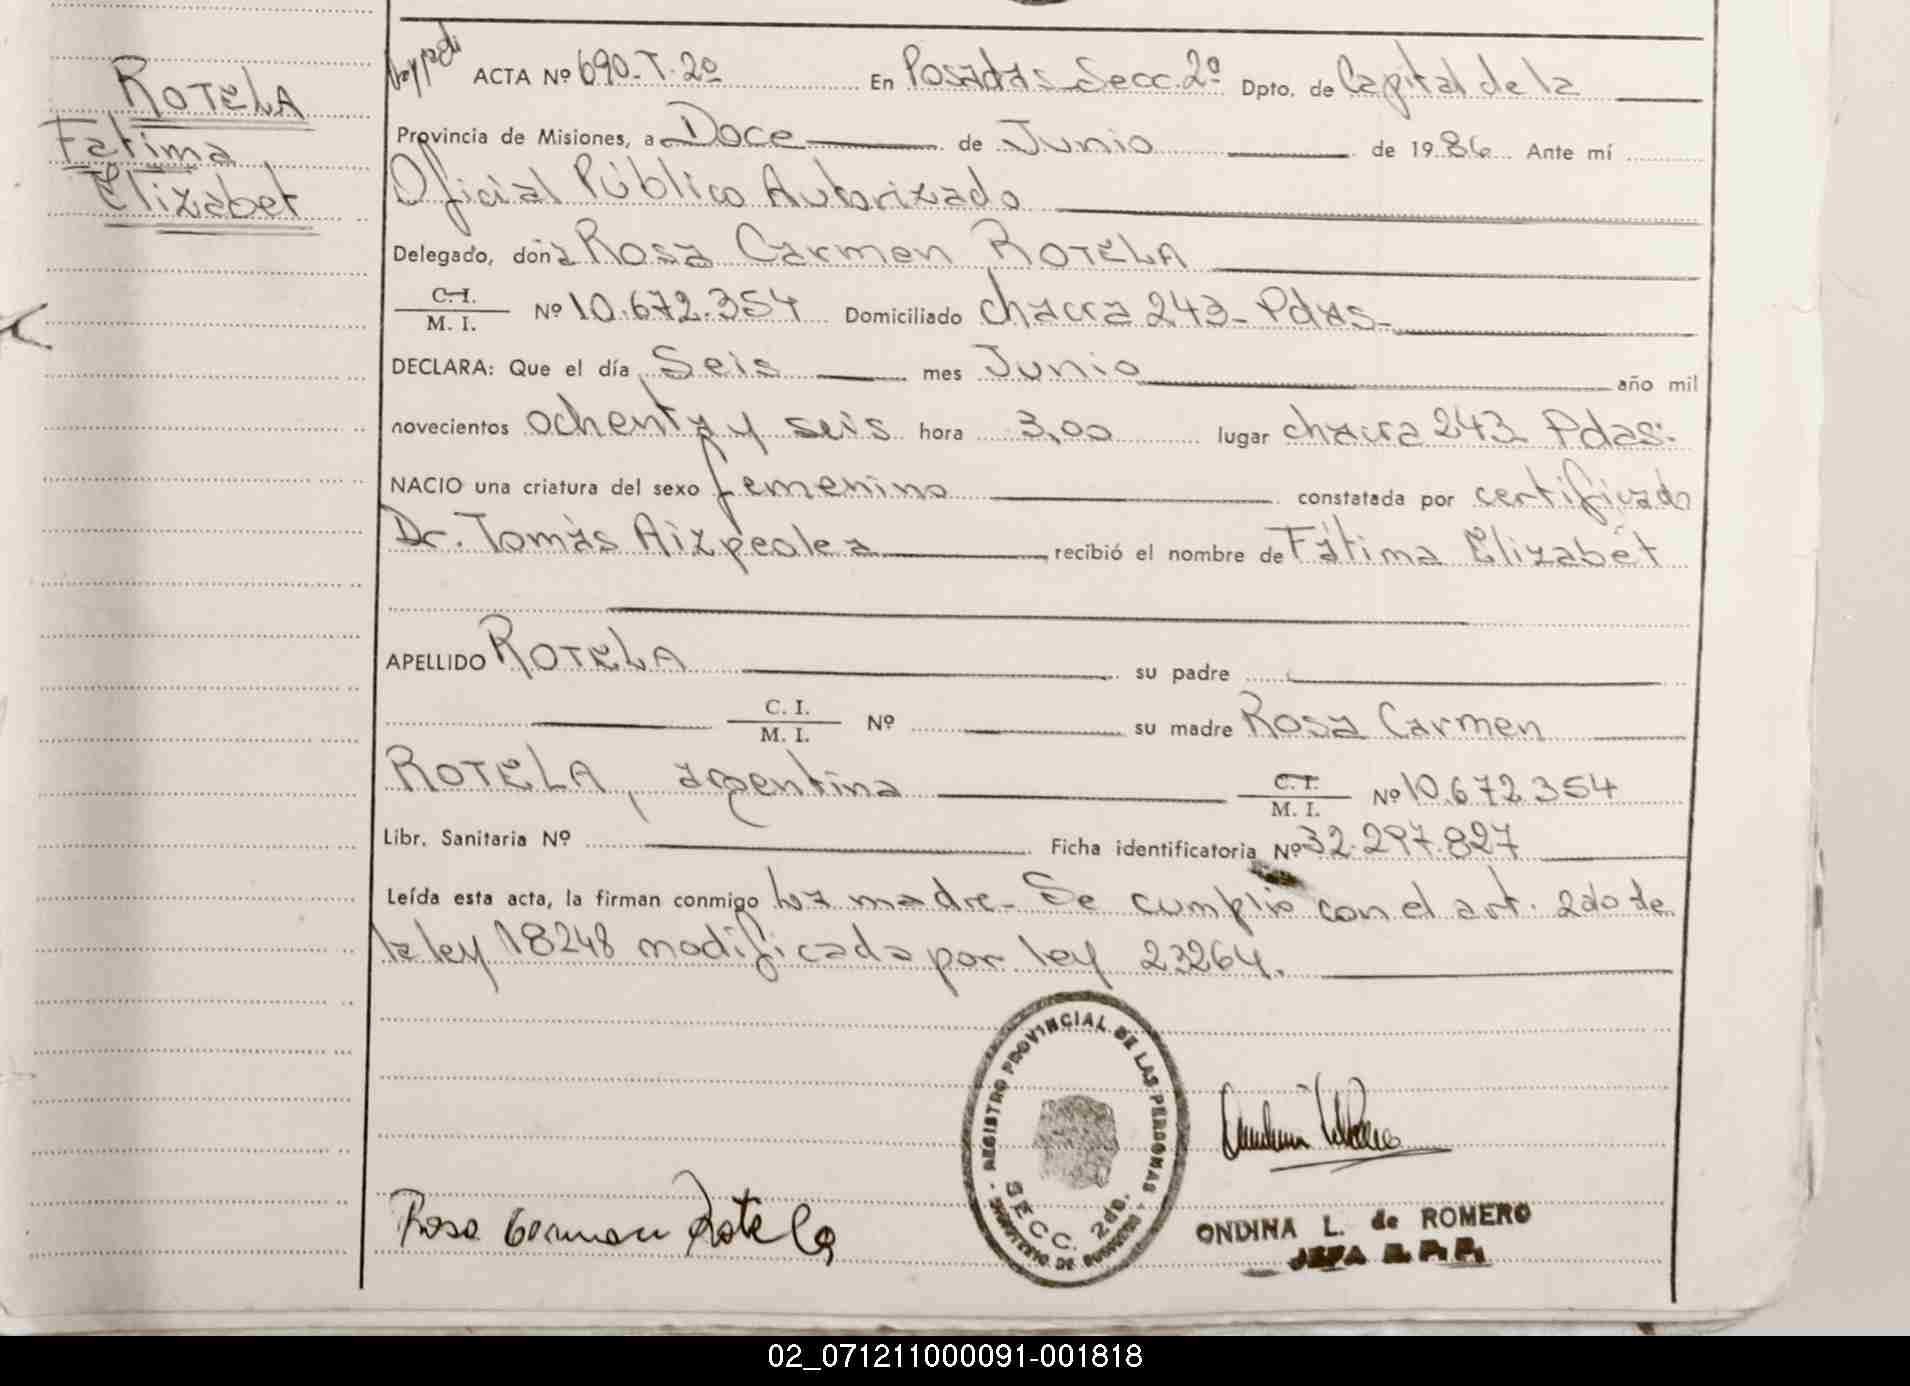 ROTELA
Fatima
Elizabet
ACTA Nº 690-T-2º En Posadas Secc. 2º Dpto. de Capital de la
Provincia de Misiones, a Doce de Junio de 1986 Ante mí
Oficial Público Autorizado
Delegado, doña Rosa Carmen ROTELA
C.I.
M. I. Nº 10.672.354 Domiciliado chacra 243- Pdas-
DECLARA: Que el día Seis mes Junio año mil
novecientos ochenta y seis hora 3,00 lugar chacra 243 Pdas:
NACIO una criatura del sexo femenino constatada por certificado
Dr. Tomás Aizpeolea recibió el nombre de Fátima Elizabet
APELLIDO ROTELA su padre
C. I.
M. I. Nº su madre Rosa Carmen
ROTELA, argentina C.I.
M. I. Nº 10.672.354
Libr. Sanitaria Nº Ficha identificatoria Nº 32.297.827
Leída esta acta, la firman conmigo la madre- Se cumplió con el art. 2do de
la ley 18248 modificada por ley 23264.
REGISTRO PROVINCIAL DE LAS PERSONAS
SECC. 2da.
MINISTERIO DE GOBIERNO
Rosa Carmen Rotela
ONDINA L. de ROMERO
JEFA R. P. P.
02_071211000091-001818